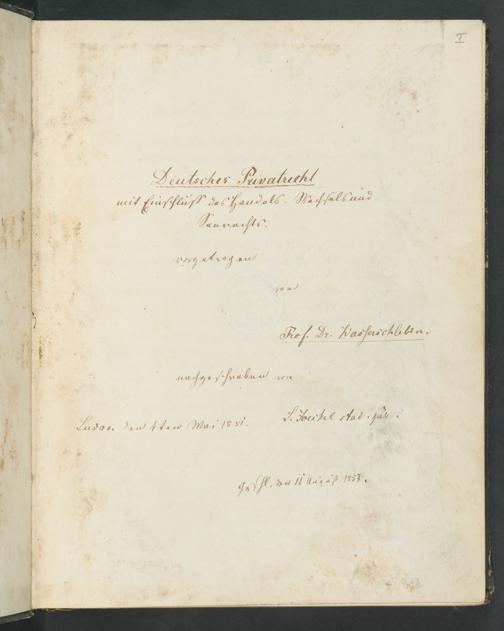 I
Deutsches Privatrecht
mit Einschluß des Handels- Wechsels und
Seerechts.
vorgetragen
von
Prof. Dr. Wasserschleben.
nachgeschrieben von
stud. jur.
den Mai 1851.
den 11 August 185